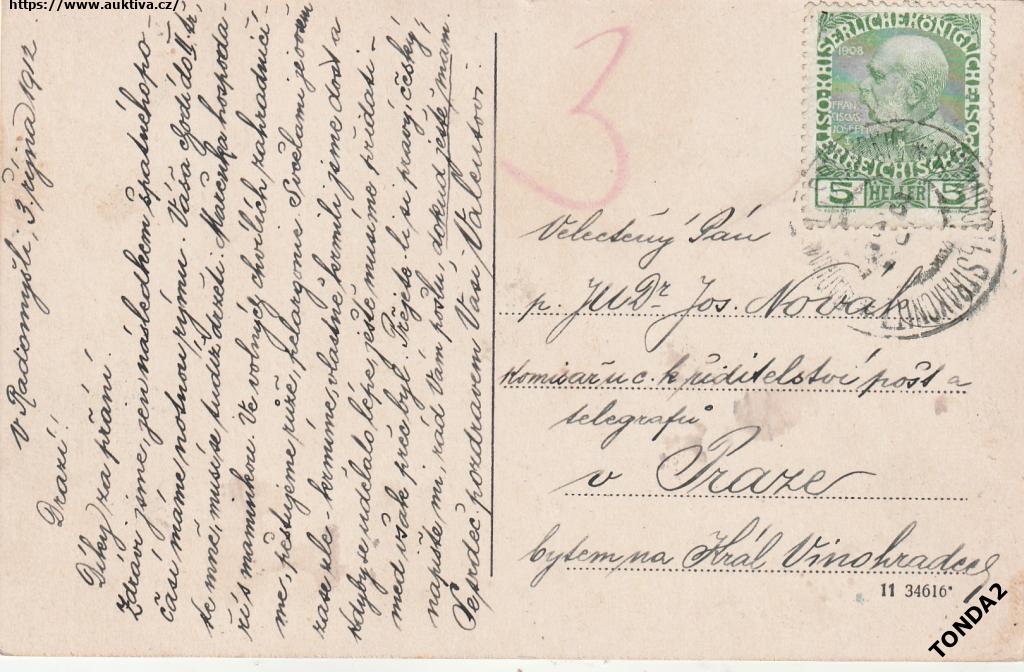 https://www.auktiva.cz/
V Radomyšli, 3. října 1912
Drazí!
Díky za přání.
Zdrávi jsme, jen následkem špatného po-
časí máme notnou rýmu. Váša chodí do II. tř.
ke mně, musí se pudit držeti. Mařenka hospoda-
ří s maminkou. Ve volných chvílích zahradničí-
me, pěstujeme růže, pelargonie. S včelami je ovšem
zase zle - krmíme, vlastně krmili jsme dost a
kdyby se udělalo lépe, ještě musíme přidati -
med však přece byl. Přijeta-li si pravý, český
napište mi, rád Vám pošlu, dokud ještě mám.
Se srdeč. pozdravem Vaši Valentovi
3
1908
KAISERLICHE KÖNIGLICHE ÖSTERREICHISCHE POST
FRAN
CISCVS
JOSEPH I
5 HELLER 5
Velectěný Pán
p. JUDr. Jos. Novák
komisař u c. k. ředitelství pošt a
telegrafů
v Praze
bytem na Král. Vinohradech
11 34616*
TONDA2